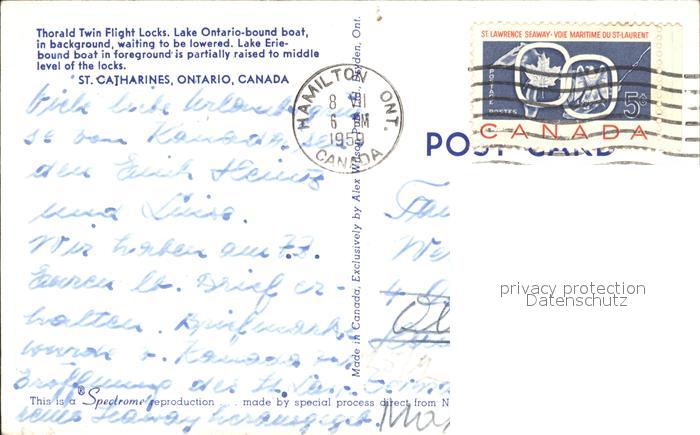 Thorald Twin Flight Locks. Lake Ontario-bound boat,
in background, waiting to be lowered. Lake Erie-
bound boat in foreground is partially raised to middle
level of the locks.
ST. CATHARINES, ONTARIO, CANADA
Viele liebe
se von Kanada,
den Euch Heinz
und Luise.
Wir haben am 7.7.
Euren lb. Brief er-
halten. Briefmarke
wurde v. Kanada zur
Eröffnung des St. Law-
rence Seaway herausgegeb.
This is a Spectrome reproduction ... made by special process direct from
Made in Canada, Exclusively by Alex Wilson
HAMILTON ONT.
8 VII
6 PM
1959
CANADA
ST. LAWRENCE SEAWAY · VOIE MARITIME DU ST-LAURENT
POSTAGE
POSTES
5¢
CANADA
POST CARD
privacy protection
Datenschutz